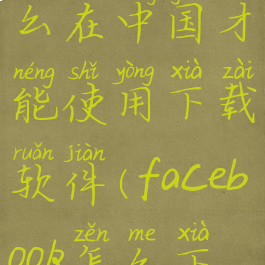 么在中国才
néng shǐ yòng xià zài
能使用下载
ruǎn jiàn
软件(faceb
zěn me xià
ook怎么下